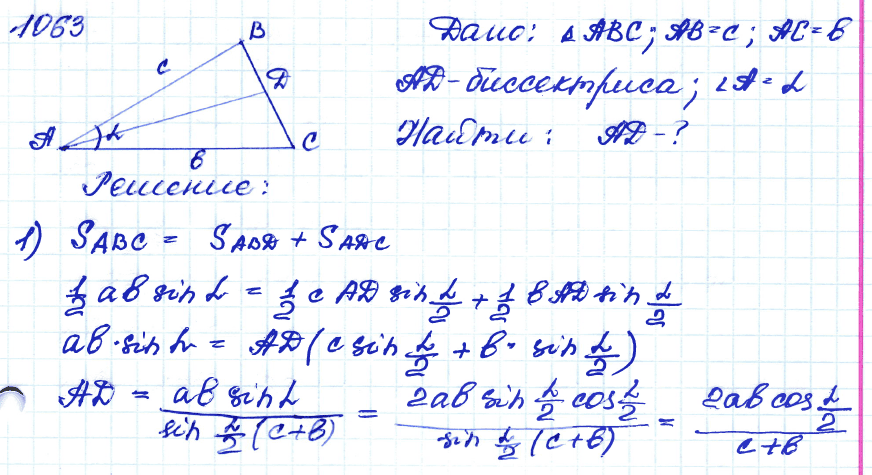 1063
B
c
D
A α C
b
Дано: △ABC; AB=c; AC=b
AD-биссектриса; ∠A=α
Найти: AD-?
Решение:
1) S_ABC = S_ABD + S_ADC
1/2 ab sin α = 1/2 c AD sin α/2 + 1/2 b AD sin α/2
ab·sin α = AD(c sin α/2 + b· sin α/2)
AD = ab sin α / sin α/2 (c+b) = 2ab sin α/2 cos α/2 / sin α/2 (c+b) = 2ab cos α/2 / c+b